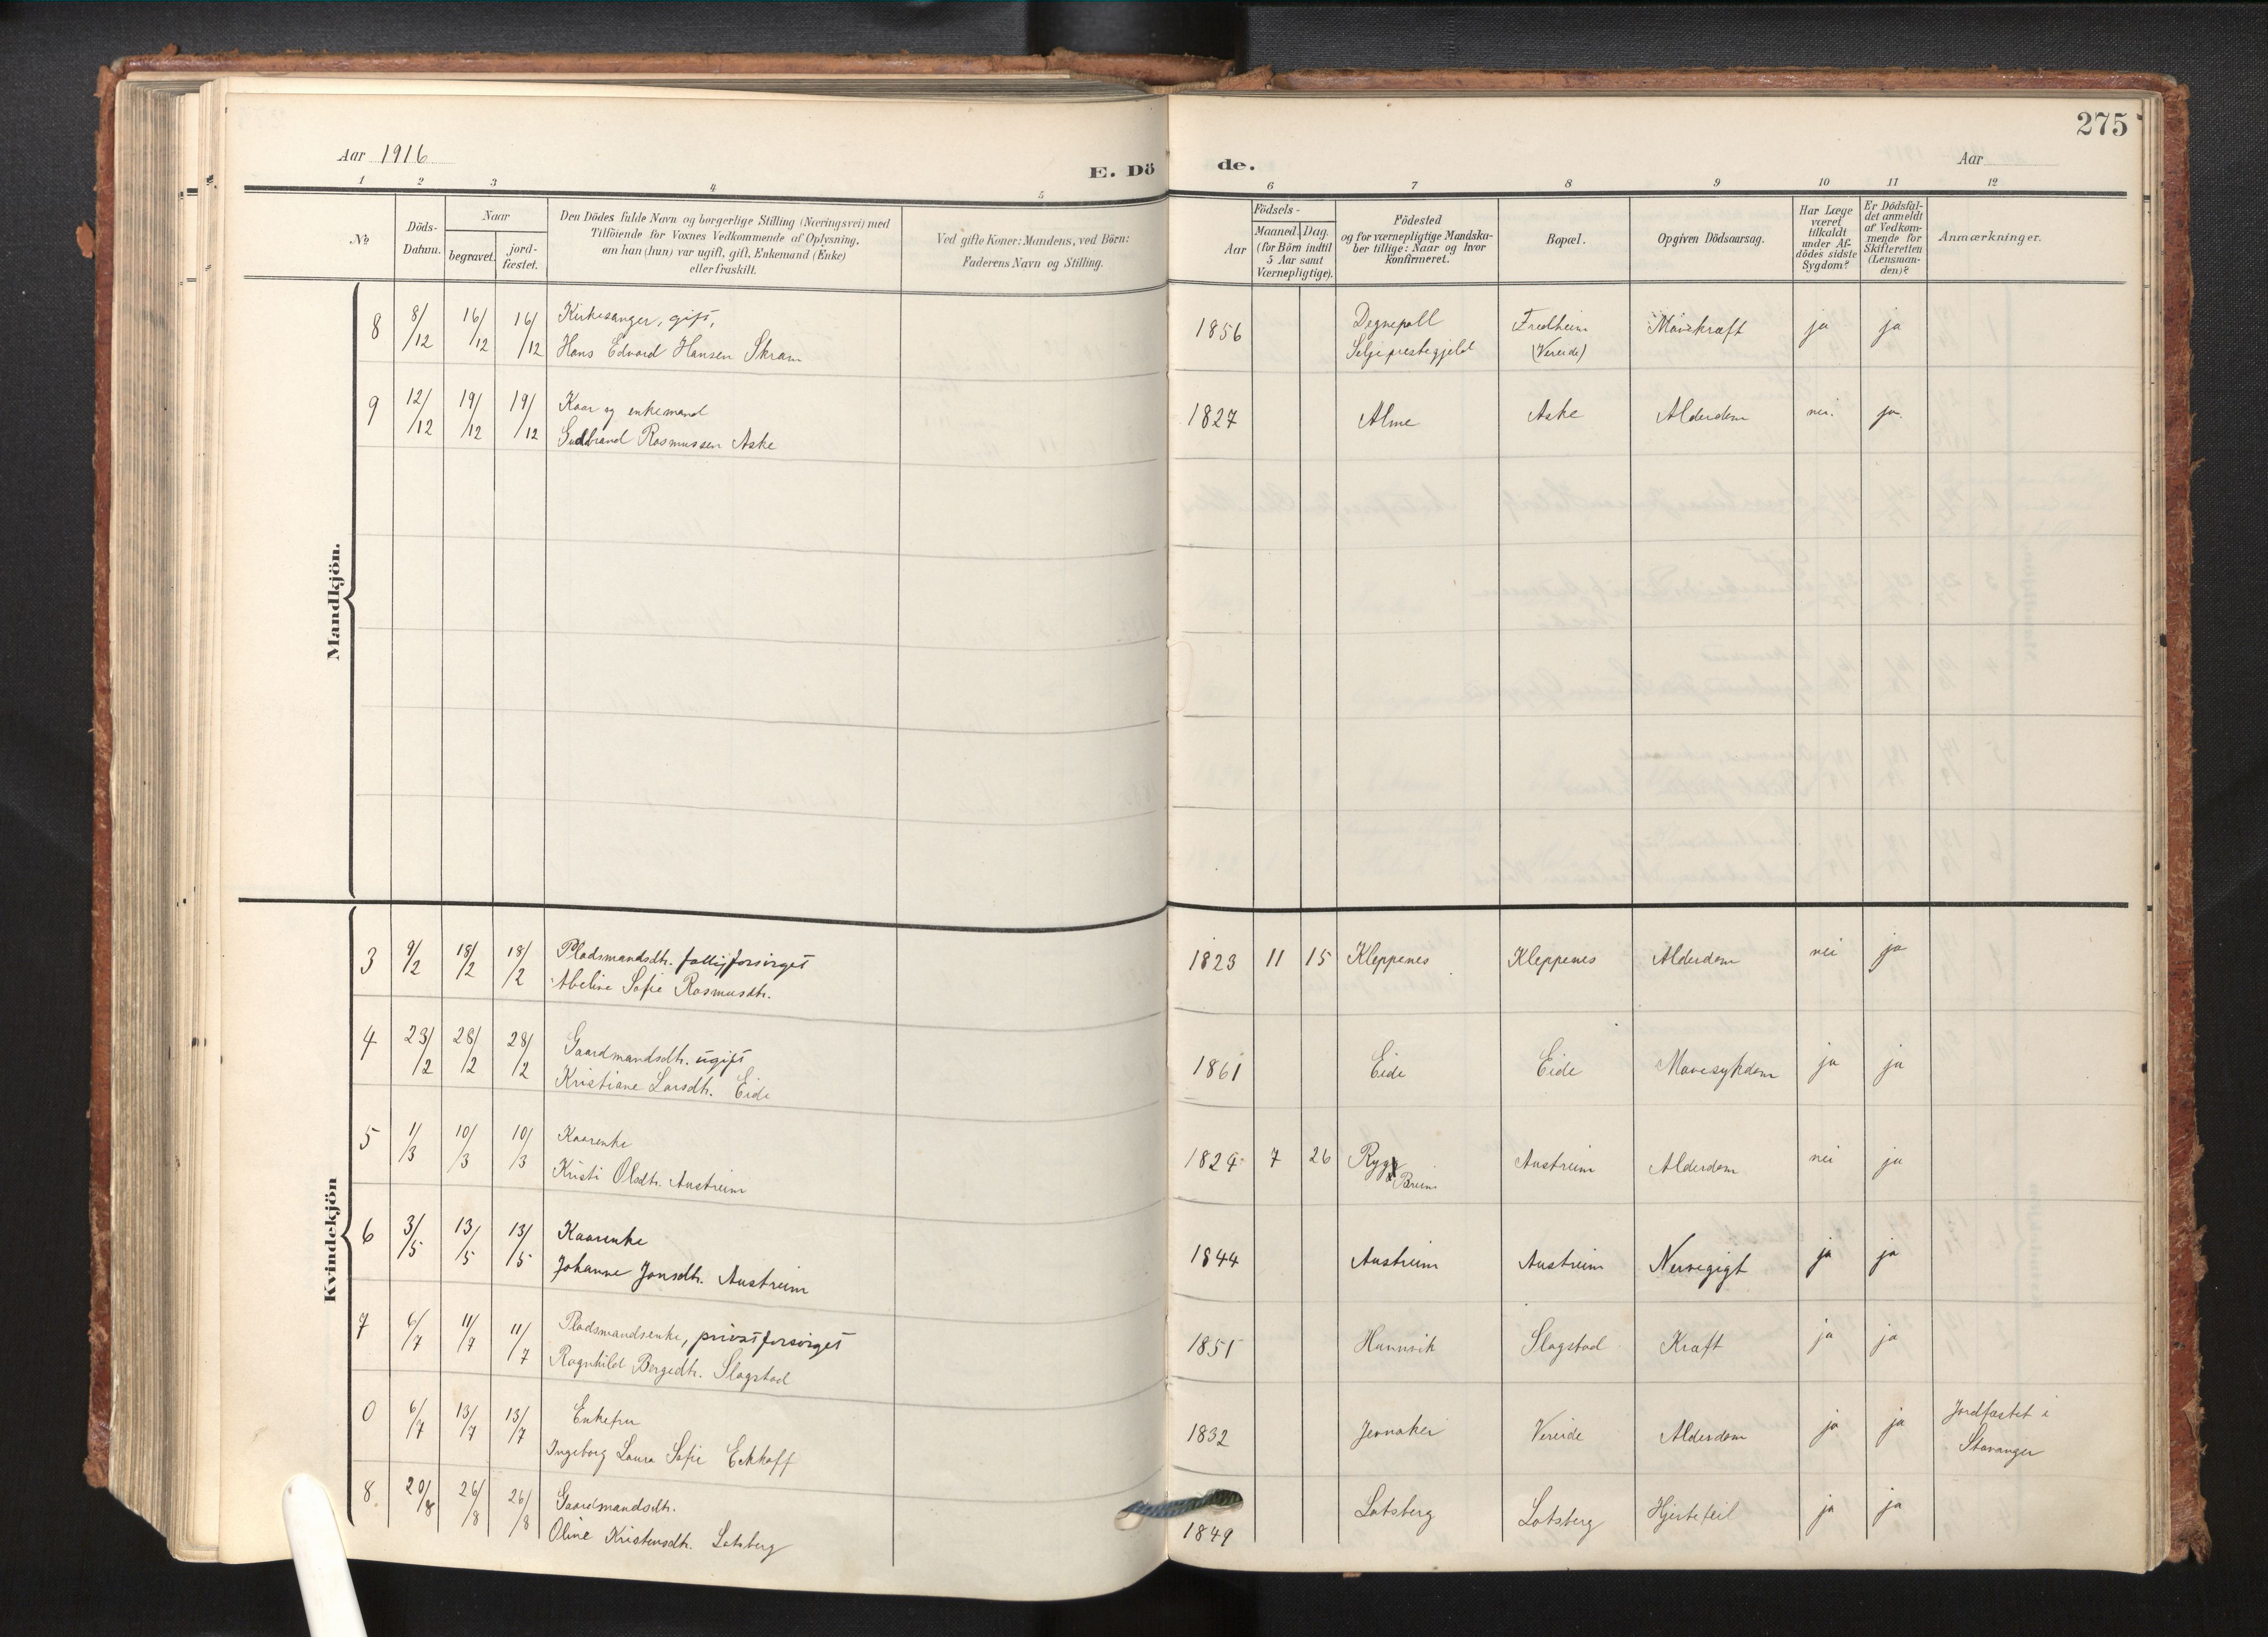 275
Aar 1916
E. Dö de.
Aar
1 2 3 4 5 6 7 8 9 10 11 12
No
Döds-
Datum.
Naar
begravet.
jord-
fæstet.
Den Dödes fulde Navn og borgerlige Stilling (Næringsvei) med
Tilföiende for Voxnes Vedkommende af Oplysning,
om han (hun) var ugift, gift, Enkemand (Enke)
eller fraskilt.
Ved gifte Koner: Mandens, ved Börn:
Faderens Navn og Stilling.
Födsels-
Aar
Maaned.
Dag.
(for Börn indtil
5 Aar samt
Værnepligtige).
Födested
og for værnepligtige Mandska-
ber tillige: Naar og hvor
konfirmeret.
Bopæl.
Opgiven Dödsaarsag.
Har Læge
været
tilkaldt
under Af-
dödes sidste
Sygdom?
Er Dödsfal-
det anmeldt
af Vedkom-
mende for
Skifteretten
(Lensman-
den)?
Anmærkninger.
Mandkjön.
8 8/12 16/12 16/12 Kirkesanger, gift,
Hans Edvard Hansen Skram
1856 Degnepoll
Selje prestegjeld
Fredheim
(Vereide)
Mavekræft ja ja
9 12/12 19/12 19/12 Kaar og enkemand
Gudbrand Rasmussen Aske
1827 Alme Aske Alderdom nei. ja.
Kvindekjön
3 9/2 18/2 18/2 Pladsmandsdtr. fattigforsörget
Abeline Sofie Rasmusdtr.
1823 11 15 Kleppenes Kleppenes Alderdom nei ja
4 23/2 28/2 28/2 Gaardmandsdtr. ugift
Kristiane Larsdtr. Eide
1861 Eide Eide Mavesykdom ja ja
5 1/3 10/3 10/3 Kaarenke
Kristi Olsdtr. Austreim
1824 7 26 Rygg
Breim
Austreim Alderdom nei ja
6 3/5 13/5 13/5 Kaarenke
Johanne Jonsdtr. Austreim
1844 Austreim Austreim Nervegigt ja ja
7 6/7 11/7 11/7 Pladsmandsenke, privatforsörget
Ragnhild Bergedtr. Slagstad
1851 Hunnvik Slagstad Kræft ja ja
0 6/7 13/7 13/7 Enkefru
Ingeborg Laura Sofie Eckhoff
1832 Jevnaker Vereide Alderdom ja ja Jordfæstet i
Stavanger
8. 20/8 26/8 26/8 Gaardmandsdtr.
Oline Kristensdtr. Lotsberg
1849 Lotsberg Lotsberg Hjertefeil ja ja